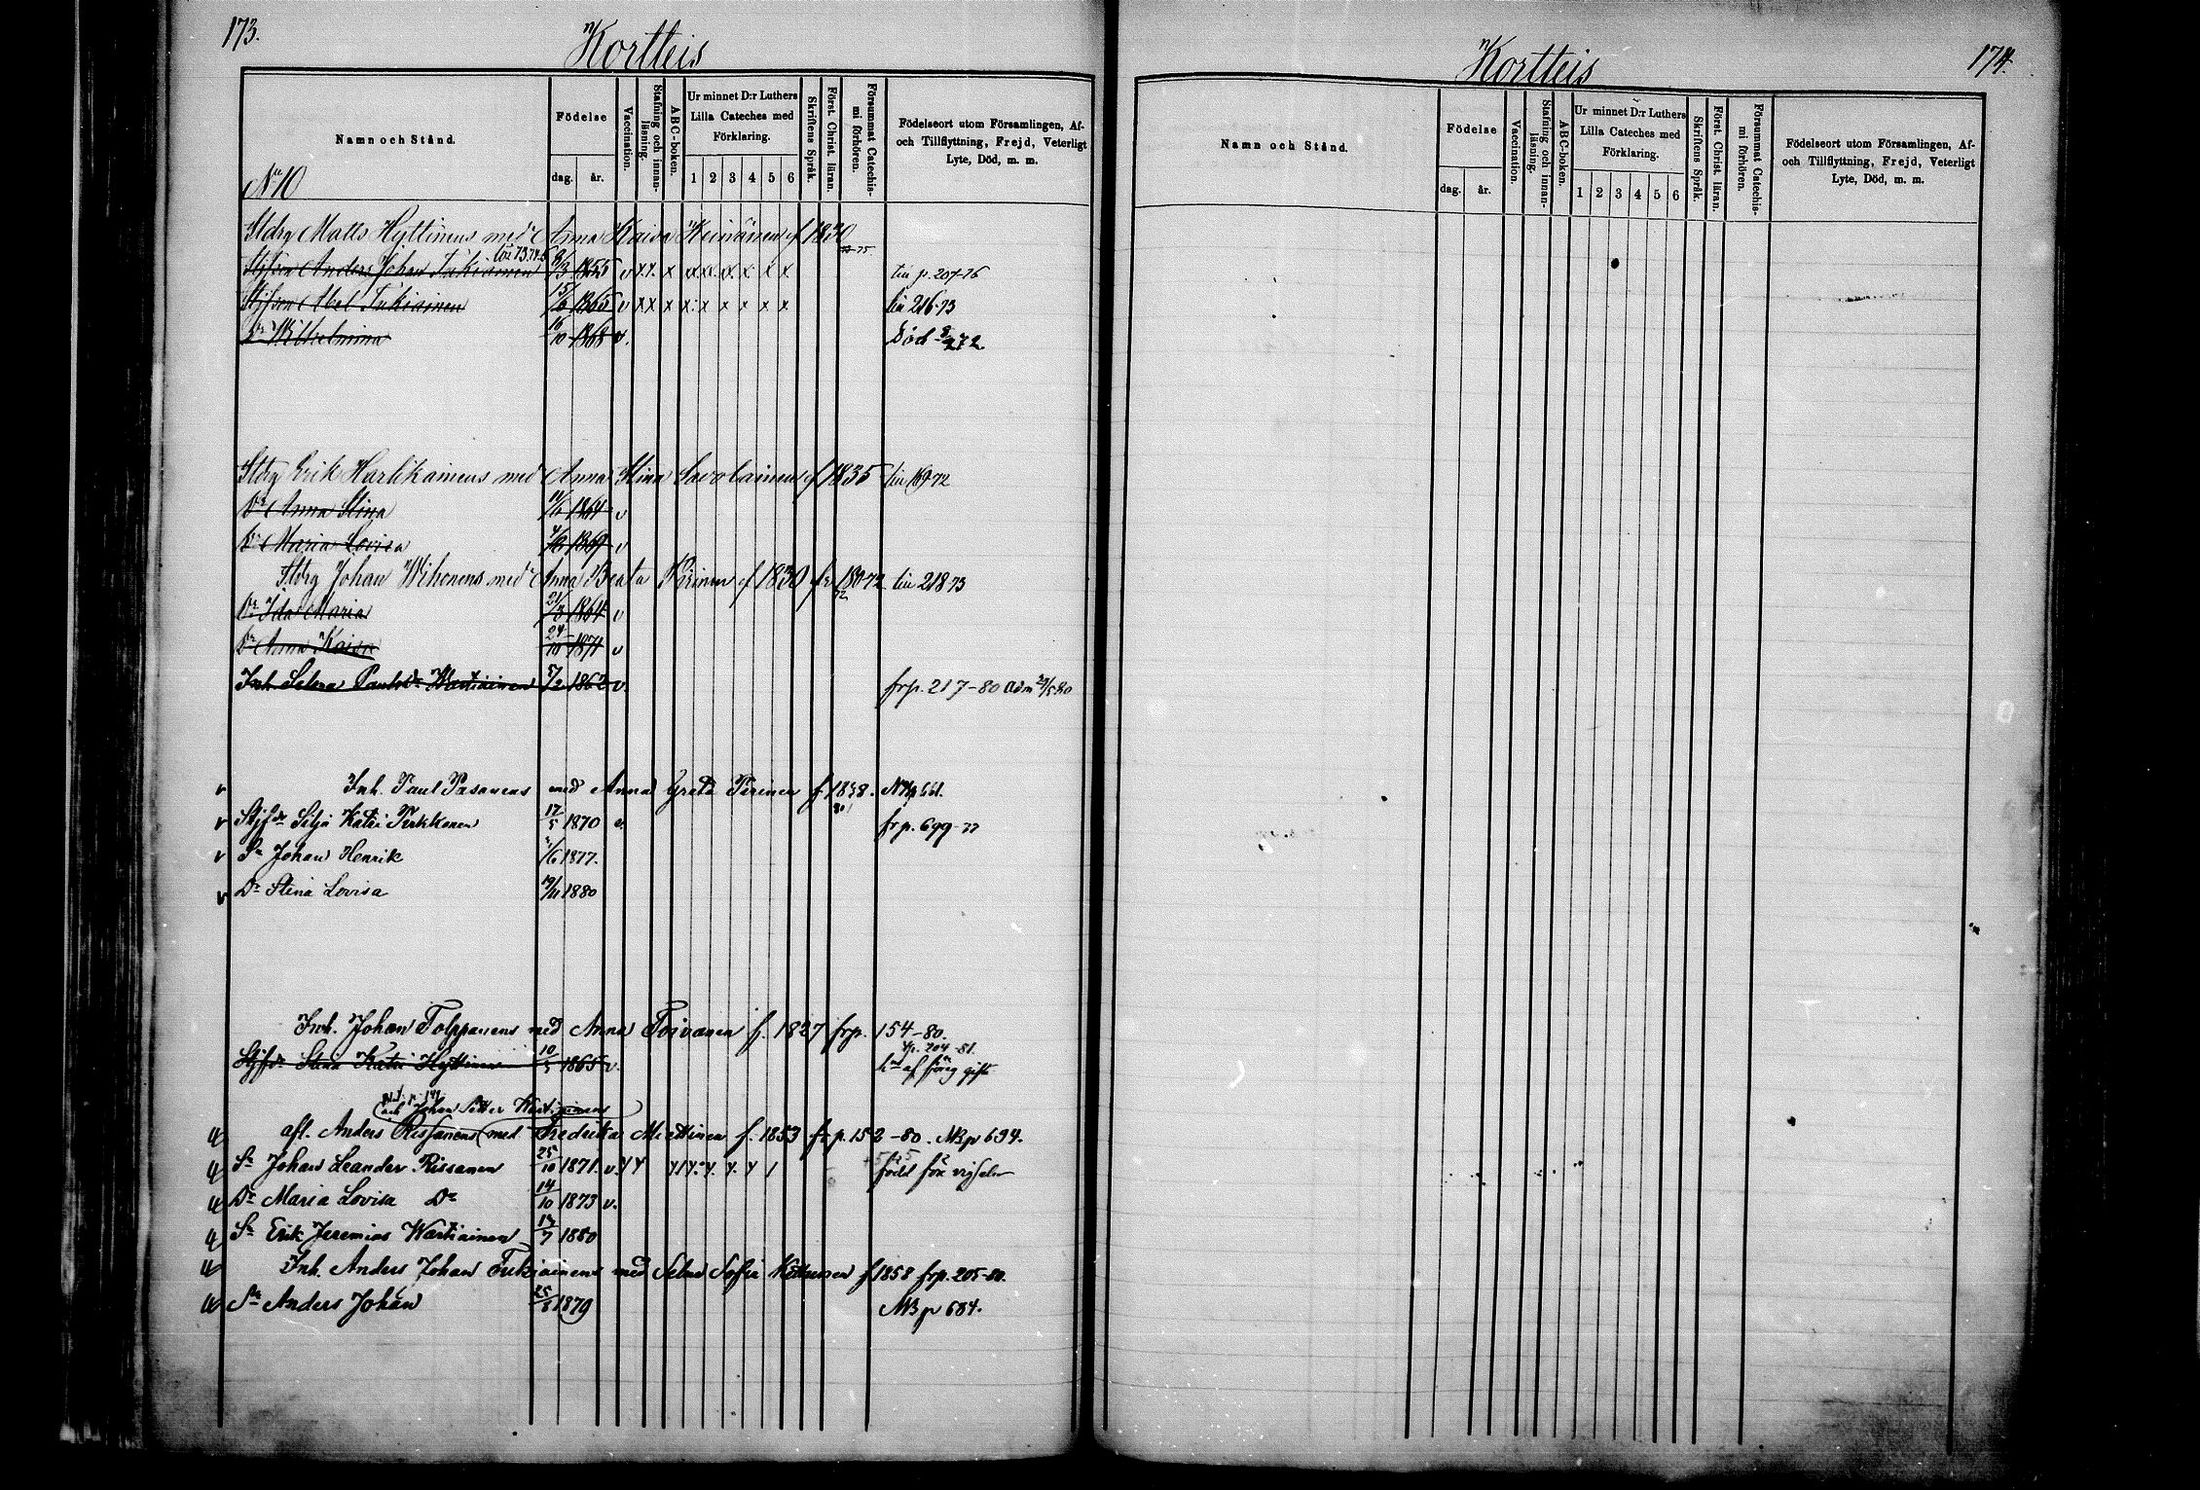 173.
Kortteis
Namn och Stånd.
Födelse
dag. år.
Vaccination.
Stafning och innan-läsning.
ABC-boken.
Ur minnet D:r Luthers Lilla Cateches med Förklaring.
1 2 3 4 5 6
Skriftens Språk.
Först. Christ. läran.
Försummat Catechis-mi förhören.
Födelseort utom Församlingen, Af-och Tillflyttning, Frejd, Veterligt Lyte, Död, m. m.
No 10
Matts Hyttinens med Anna Kaisa Heinänen f 1830
Anders Johan Tukiainen 1855 v x x. x x x x x x p. 207-76
Stjfson Abel Tukiainen 15/6 1865 v x x x x x x x x x 216-73
Dr Wilhelmina 16/10 1868 v. Död 72.
Erik Harlikainens med Anna Stina Savolainen f 1835
Dr Anna Stina 1864 v
Dr Maria Lovisa 1869 v
Johan Wihonens med Anna Beata Piirinen f 1830 180 72 218 73
Dr Ida Maria 1864 v
Dr Anna Kaisa 24/10 1871 v
Inh Selma Paulsdr Wartiainen 1862 v. frp. 217-80
Inh. Paul Pasanens med Anna Greta Piirinen f. 1838. NB p 661.
v Stjfdr Silja Katri Pirkkonen 17/5 1870 v. frp. 699-77
v Sn Johan Henrik 1877.
v Dr Stina Lovisa 1880
Inh. Johan Tolppanens med Anna Toivanen f. 1827 frp. 154-80.
Stjfdr Stina Katri Hyttinen 10/5 1865 v. 204-81.
Johan Petter Wartiainens
afl. Anders Rissanens med Fredrika Miettinen f. 1853 fr p. 152-80. NB p 694.
Sn Johan Leander Rissanen 25/10 1871. v. född före vigseln
Dr Maria Lovisa Dr 14/10 1873 v.
Sn Erik Jeremias Wartiainen 1880
Inh. Anders Johan Tukiainens med Selma Sofia f 1858 frp. 205-80.
Sn Anders Johan 25/8 1879 NB p 684.
Kortteis
174.
Namn och Stånd.
Födelse
dag. år.
Vaccination.
Stafning och innan-läsning.
ABC-boken.
Ur minnet D:r Luthers Lilla Cateches med Förklaring.
1 2 3 4 5 6
Skriftens Språk.
Först. Christ. läran.
Försummat Catechis-mi förhören.
Födelseort utom Församlingen, Af-och Tillflyttning, Frejd, Veterligt Lyte, Död, m. m.